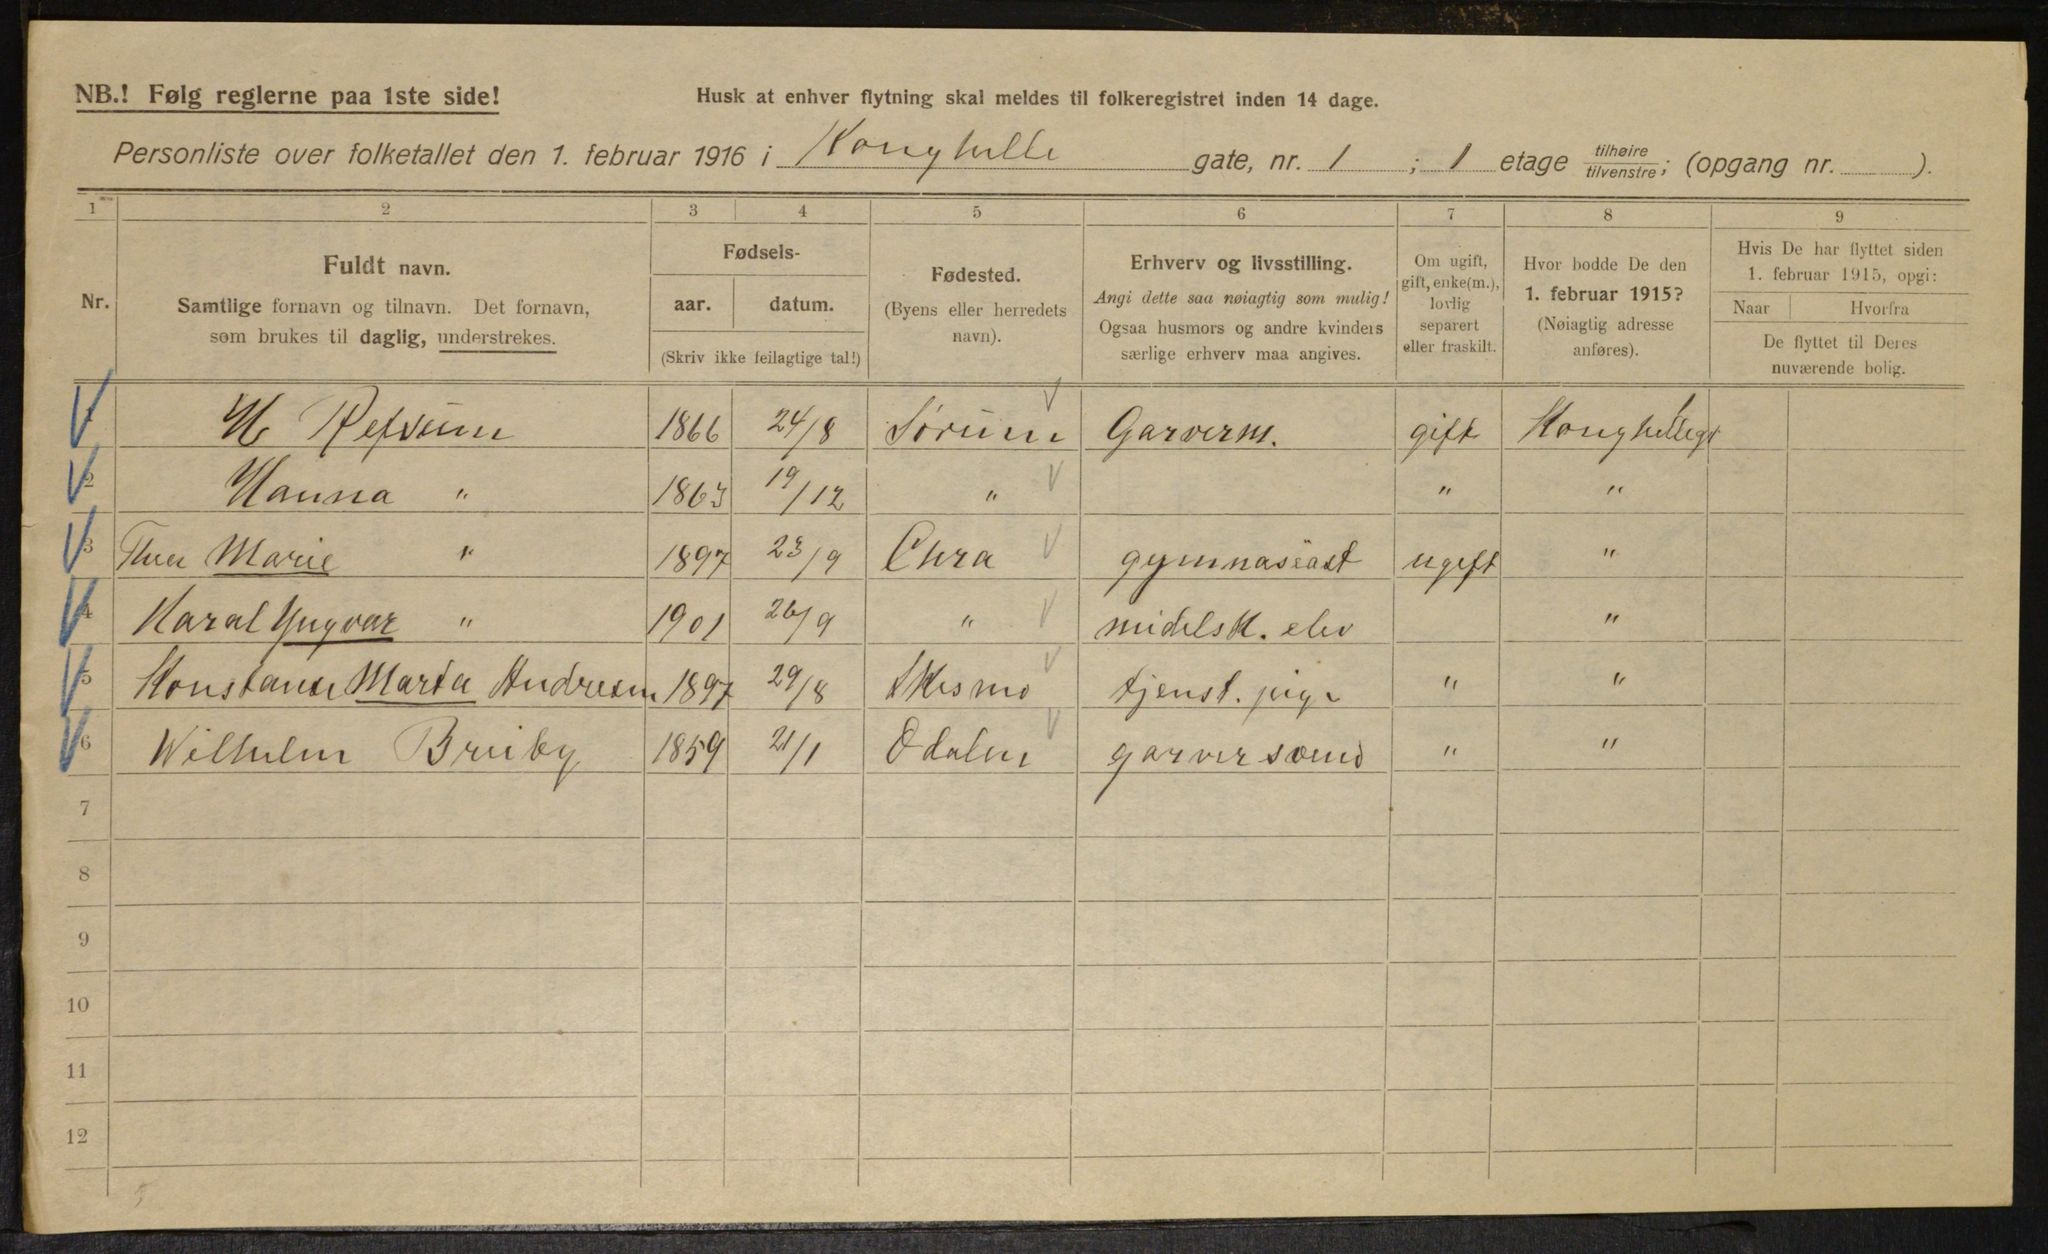 NB.! Følg reglerne paa 1ste side!
Husk at enhver flytning skal meldes til folkeregistret inden 14 dage.
Personliste over folketallet den 1. februar 1916 i Konghelle gate, nr. 1 ; 1 etage tilhøire/tilvenstre; (opgang nr. ).
1 2 3 4 5 6 7 8 9
Nr.
Fuldt navn.
Samtlige fornavn og tilnavn. Det fornavn,
som brukes til daglig, understrekes.
Fødsels-
aar. datum.
(Skriv ikke feilagtige tal!)
Fødested.
(Byens eller herredets
navn).
Erhverv og livsstilling.
Angi dette saa nøiagtig som mulig!
Ogsaa husmors og andre kvinders
særlige erhverv maa angives.
Om ugift,
gift, enke(m.),
lovlig
separert
eller fraskilt.
Hvor bodde De den
1. februar 1915?
(Nøiagtig adresse
anføres).
Hvis De har flyttet siden
1. februar 1915, opgi:
Naar Hvorfra
De flyttet til Deres
nuværende bolig.
1 H Refsum 1866 24/8 Sørum Garverm. gift Konghellegt 1
2 Hanna " 1863 19/12 " " "
3 Thea Marie " 1897 23/9 Chra gymnasiast ugift "
4 Haral Yngvar " 1901 26/9 " midelsk. elev "
5 Konstance Marta Andresen 1897 29/8 Skesmo tjenst. pige " "
6 Wilhelm Bruby 1859 21/1 Odalen garversvend " "
7
8
9
10
11
12